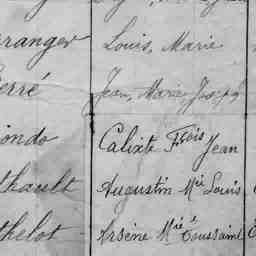 ranger Louis, Marie
erré Jean, Marie Joseph
iondo Calixte Fçois Jean
thault Augustin Mie Louis
thelot Arsène Mie Toussaint